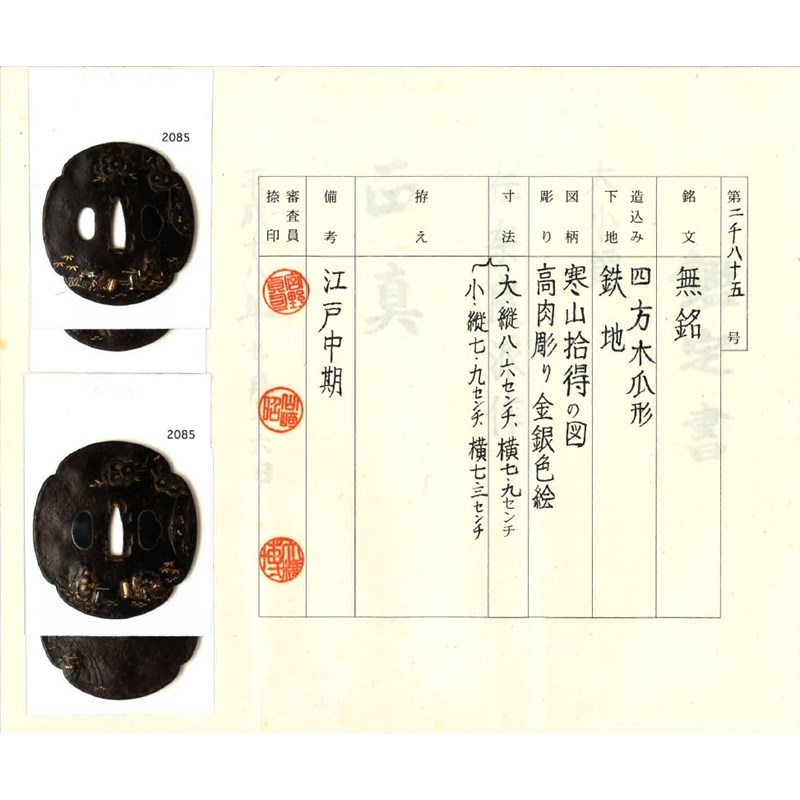 2085
2085
第二千八十五号
銘文
無銘
造込み
下地
四方木瓜形
鉄地
図柄
彫り
寒山拾得の図
高肉彫り金銀色絵
寸法
大・縦八・六センチ、横七・九センチ
小・縦七・九センチ、横七・三センチ
拵え
備考
江戸中期
審査員
捺印